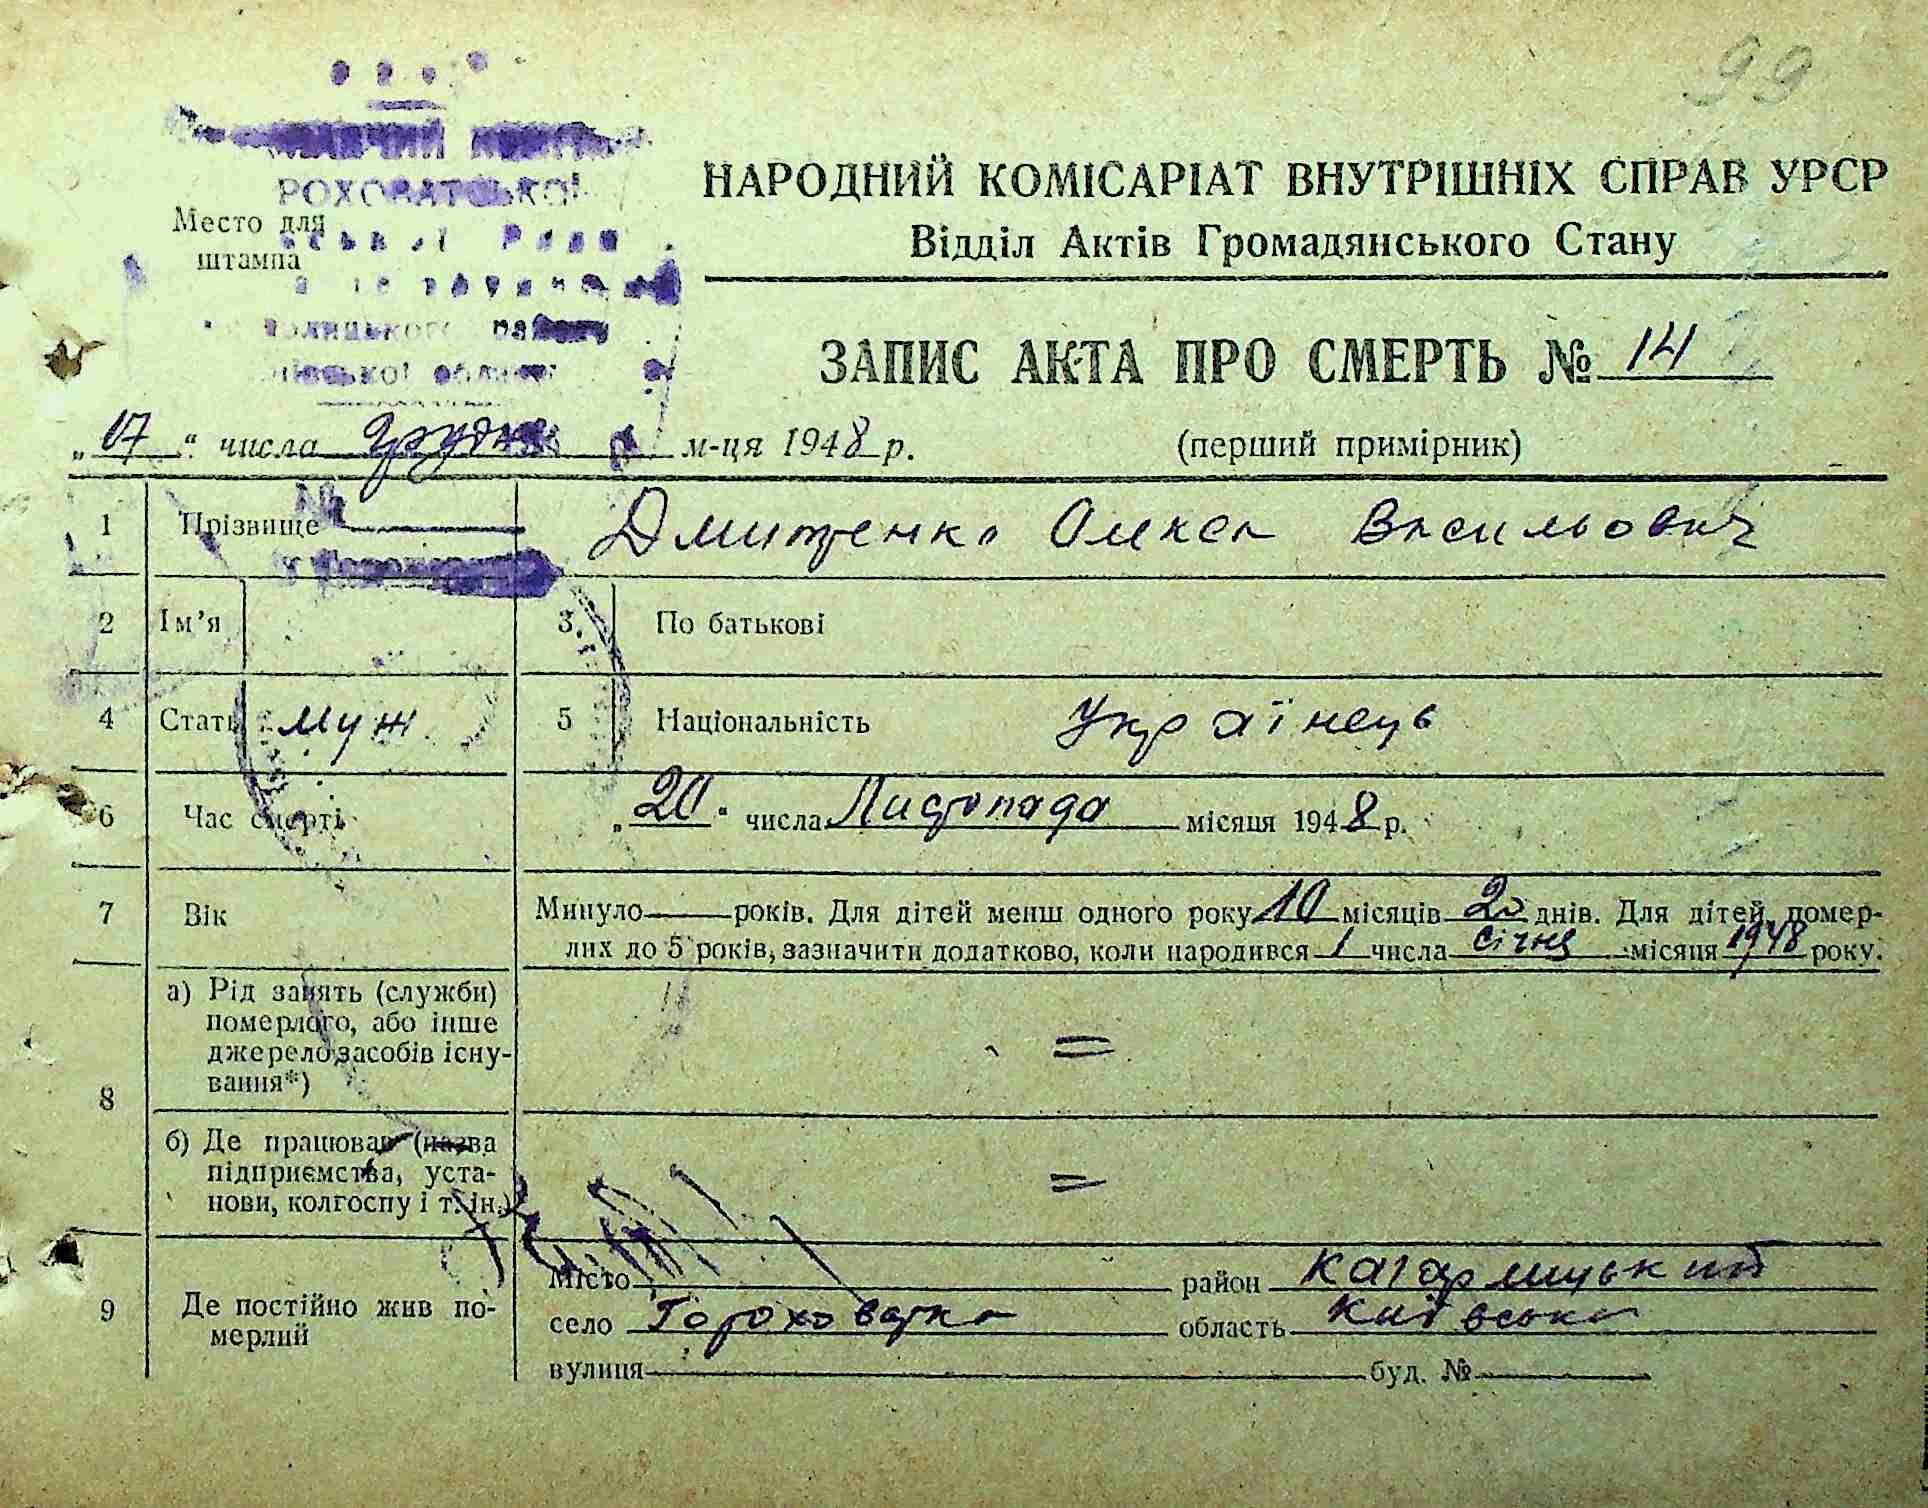 99
РОХОВАТСЬКОЇ
Место для
штампа
НАРОДНИЙ КОМІСАРІАТ ВНУТРІШНІХ СПРАВ УРСР
Відділ Актів Громадянського Стану
ЗАПИС АКТА ПРО СМЕРТЬ № 14
"17" числа Грудня м-ця 1948 р. (перший примірник)
1 Прізвище Дмитренко Олекса Васильович
2 Ім'я 3 По батькові
4 Стать муж. 5 Національність Українець
6 Час смерті "20" числа Листопада місяця 1948 р.
7 Вік Минуло — років. Для дітей менш одного року 10 місяців 20 днів. Для дітей, помер-
лих до 5 років, зазначити додатково, коли народився 1 числа січня місяця 1948 року.
8 а) Рід занять (служби)
померлого, або інше
джерело засобів існу-
вання*) =
б) Де працював (назва
підприємства, уста-
нови, колгоспу і т. ін.) =
9 Де постійно жив по-
мерлий
Місто район Кагарлицький
село Гороховатка область Київська
вулиця буд. №